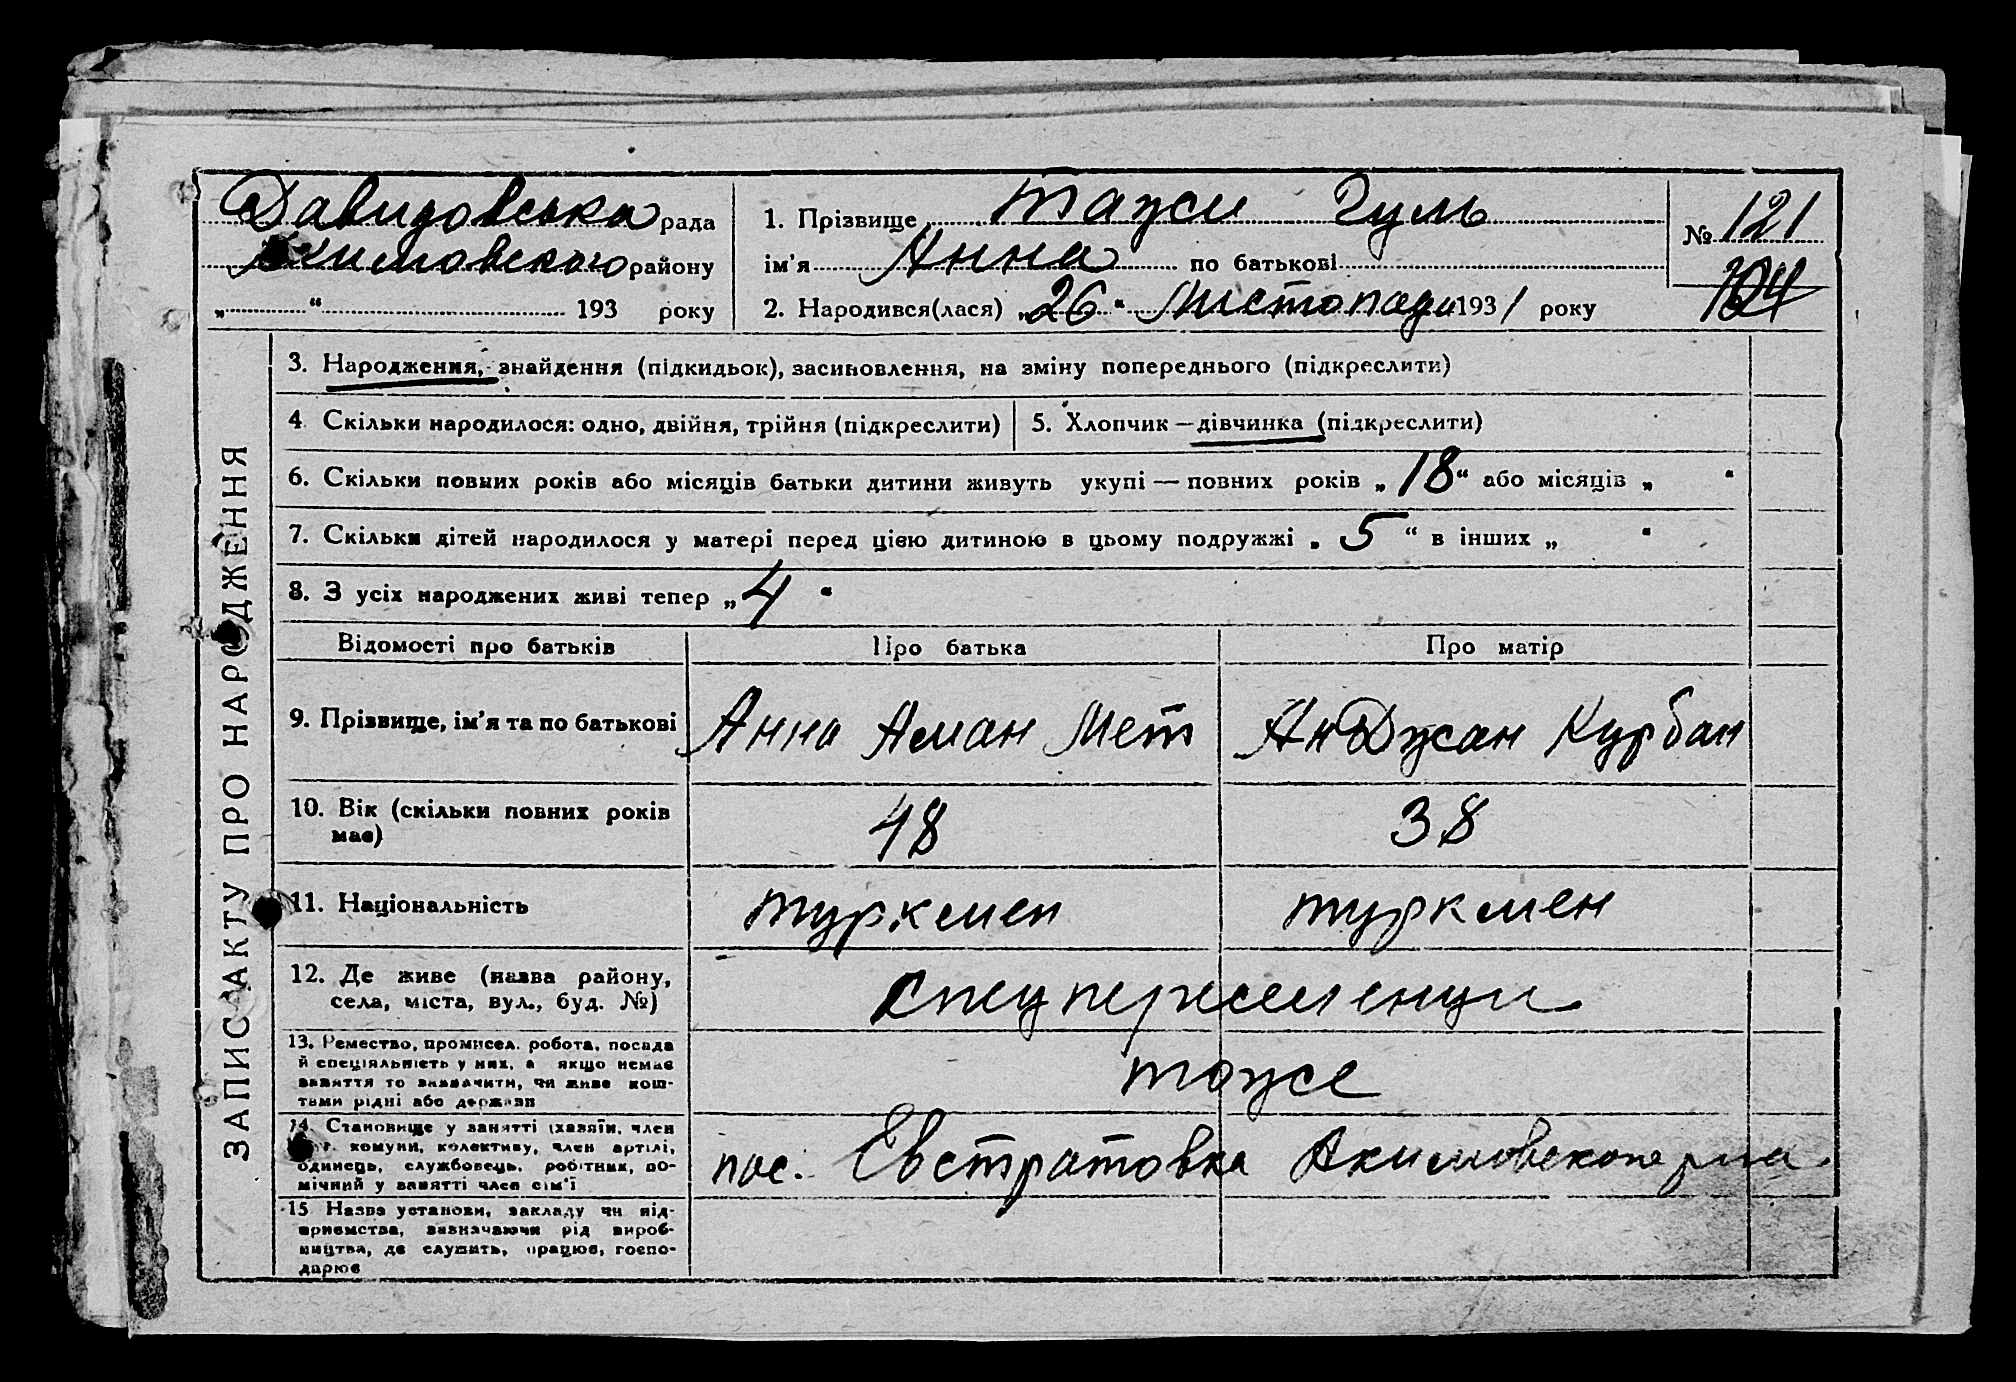 ЗАПИС АКТУ ПРО НАРОДЖЕННЯ
Давидовська рада
Якимовского району
„ “ 193 року
1. Прізвище Тажи Гуль
ім’я Анна по батькові
2. Народився(лася) „26“ Листопада 1931 року
№ 121
104
3. Народження, знайдення (підкидьок), засиновлення, на зміну попереднього (підкреслити)
4. Скільки народилося: одно, двійня, трійня (підкреслити) 5. Хлопчик — дівчинка (підкреслити)
6. Скільки повних років або місяців батьки дитини живуть укупі — повних років „18“ або місяців „ “
7. Скільки дітей народилося у матері перед цією дитиною в цьому подружжі „5“ в інших „ “
8. З усіх народжених живі тепер „4“
Відомості про батьків Про батька Про матір
9. Прізвище, ім’я та по батькові Анна Аман Мет АнДжан Курбан
10. Вік (скільки повних років
має) 48 38
11. Національність туркмен туркмен
12. Де живе (назва району,
села, міста, вул., буд. №) спецпереселенци
13. Ремество, промисел, робота, посада
й спеціяльність у них, а якщо немає
заняття то зазначити, чи живе кош-
тами рідні або держави тоже
14. Становище у занятті (хазяїн, член
комуни, колективу, член артілі,
одинець, службовець, робітник, по-
мічний у занятті член сім’ї пос. Евстратовка Акимовского р-на
15 Назва установи, закладу чи під-
приємства, визначаючи рід вироб-
ництва, де служить, працює, госпо-
дарює